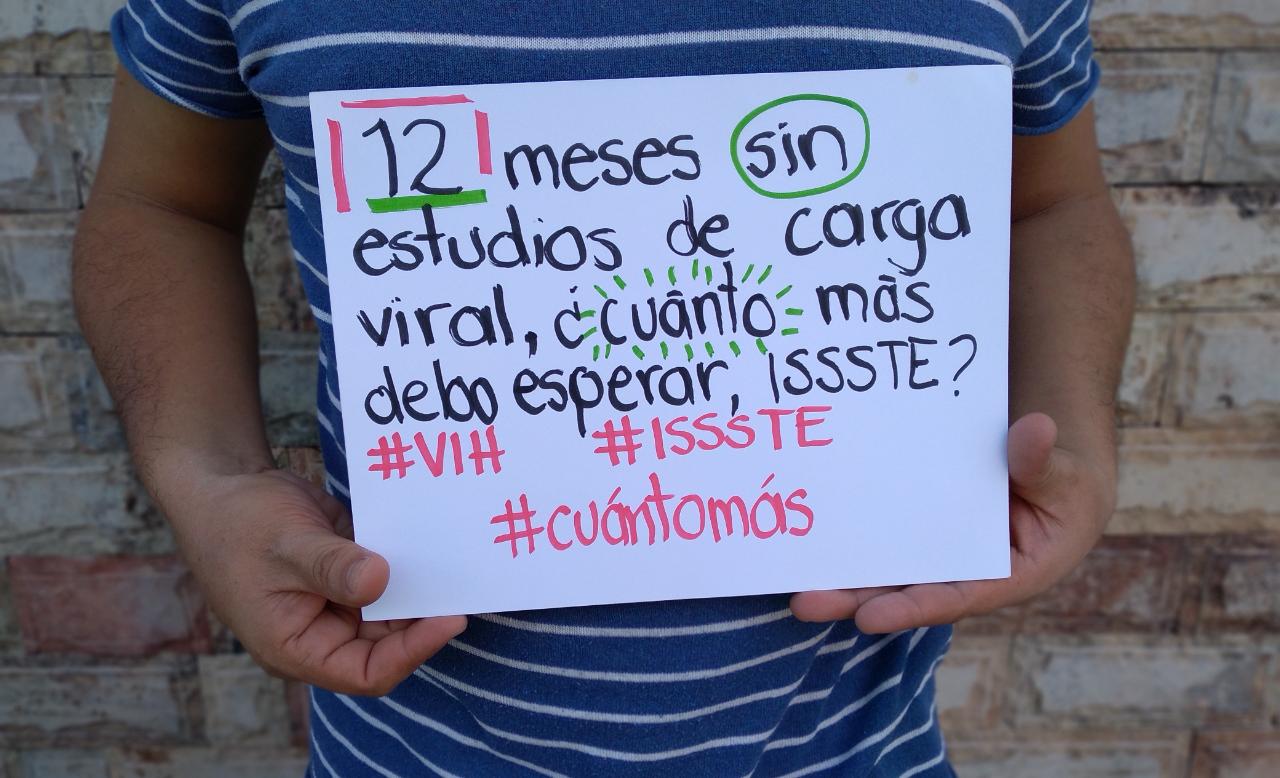 12 meses sin
estudios de carga
viral, ¿cuánto más
debo esperar, ISSSTE?
#VIH #ISSSTE
#cuántomás